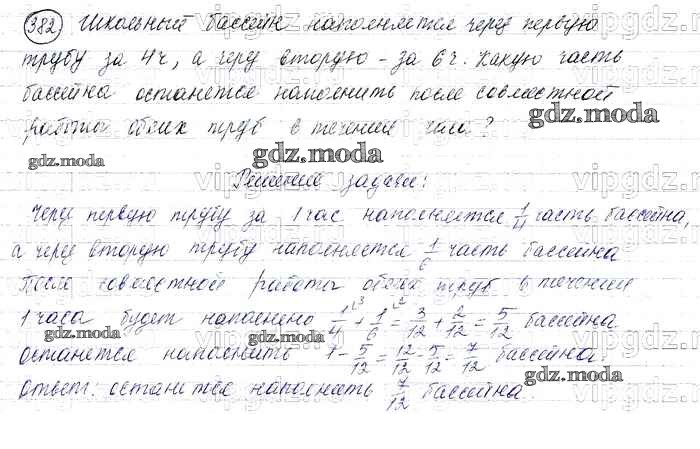 382 Школьный бассейн наполняется через первую
трубу за 4ч, а через вторую - за 6ч. Какую часть
бассейна останется наполнить после совместной
работы обеих труб в течение часа?
gdz.moda
gdz.moda
gdz.moda
Решение задачи:
Через первую трубу за 1 час наполняется 1/4 часть бассейна,
а через вторую трубу наполняется 1/6 часть бассейна
После совместной работы обеих труб в течении
1 часа будет наполнено 1/4 + 1/6 = 3/12 + 2/12 = 5/12 бассейна
gdz.moda
gdz.moda
останется наполнить 1 - 5/12 = 12/12 - 5/12 = 7/12 бассейна.
gdz.moda
ответ: останется наполнить 7/12 бассейна.